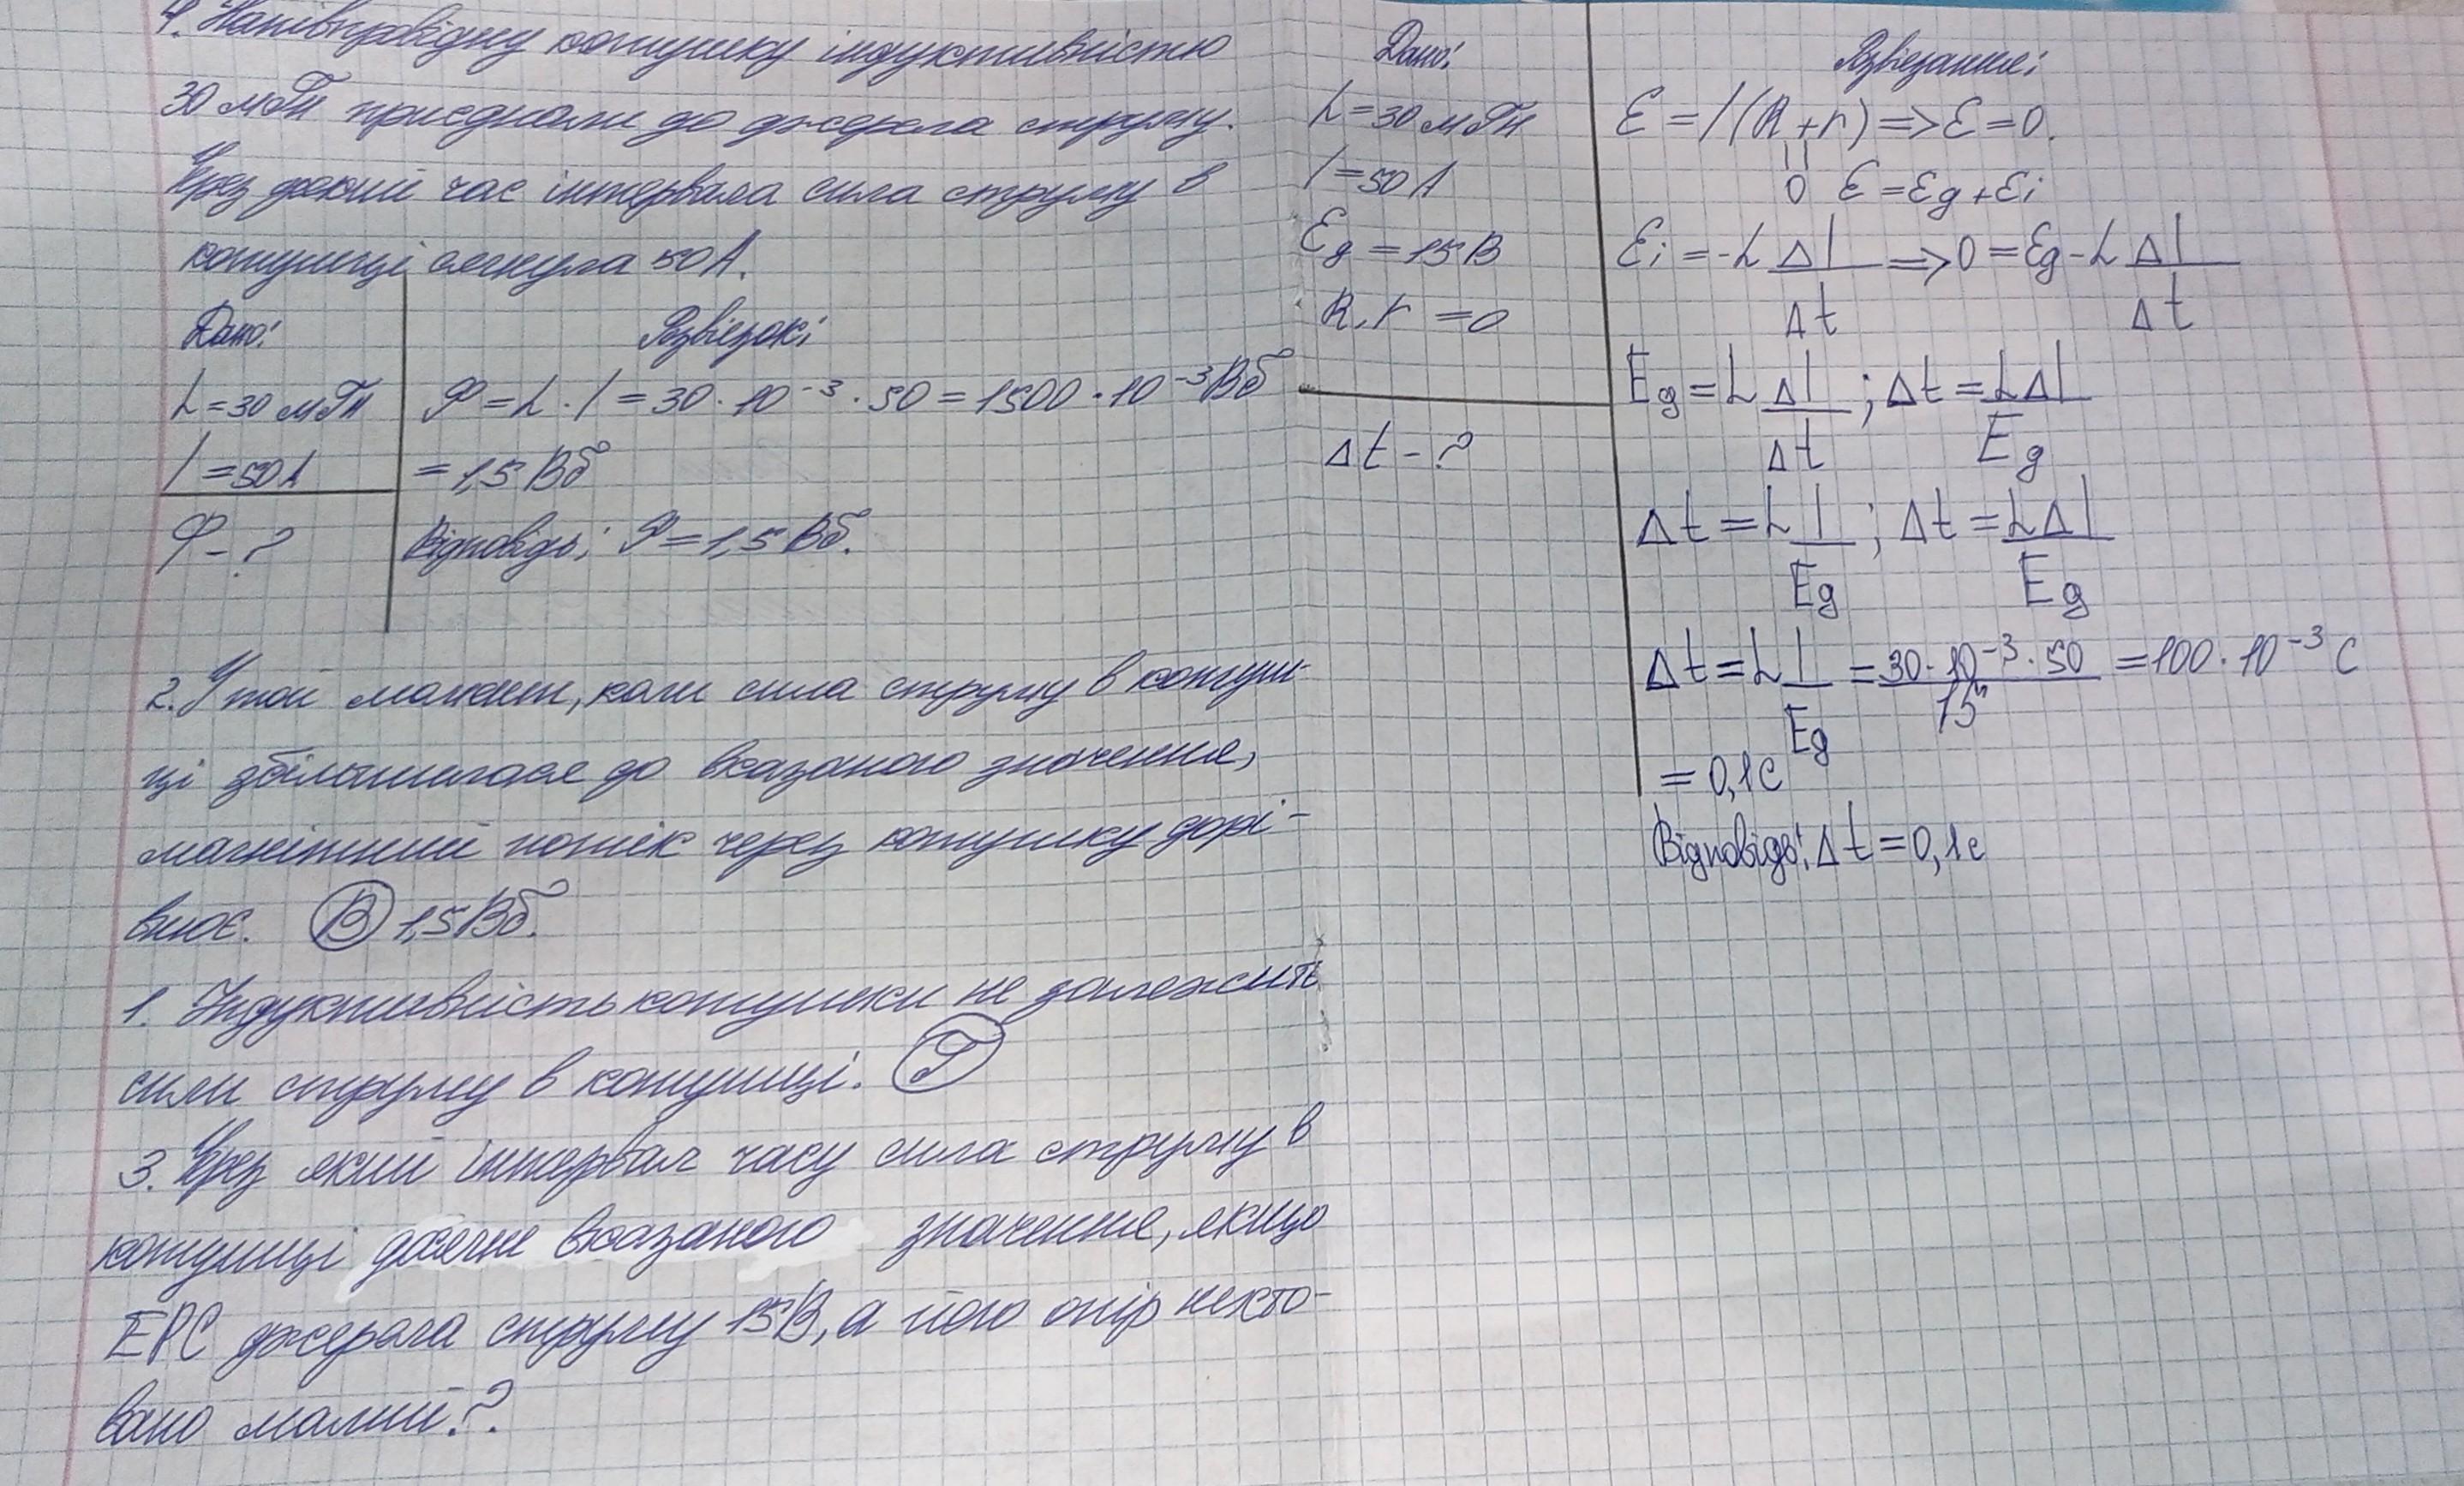 4. Напівпровідну котушку індуктивністю
30 мГн приєднали до джерела струму.
Через деякий час інтервала сила струму в
котушці сягнула 50 А.
Дано:
Розв'язок:
L = 30 мГн
Ф = L · I = 30 · 10⁻³ · 50 = 1500 · 10⁻³ Вб
I = 50 А
= 1,5 Вб
Ф - ?
Відповідь: Ф = 1,5 Вб.
2. У той момент, коли сила струму в котуш-
ці збільшилася до вказаного значення,
магнітний потік через котушку дорі-
внює. В 1,5 Вб.
1. Індуктивність котушки не залежить
сили струму в котушці. Г
3. Через який інтервал часу сила струму в
котушці досягне вказаного значення, якщо
ЕРС джерела струму 15 В, а його опір нехто-
вано малий?
Дано:
L = 30 мГн
I = 50 А
Ɛg = 15 В
R, r = 0
Δt - ?
Розв'язання:
Ɛ = I(R + r) => Ɛ = 0.
0 Ɛ = Ɛg + Ɛi
Ɛi = -L ΔI/Δt => 0 = Ɛg - L ΔI/Δt
Eg = L ΔI/Δt ; Δt = LΔI/Eg
Δt = L I/Eg ; Δt = LΔI/Eg
Δt = L I/Eg = 30 · 10⁻³ · 50/15 = 100 · 10⁻³ С
= 0,1 с
Відповідь: Δt = 0,1 с